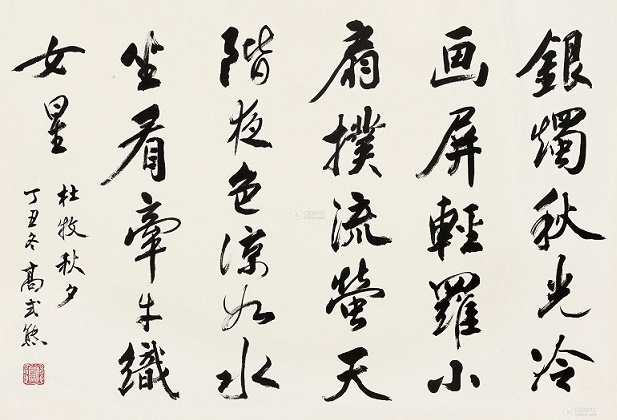 銀燭秋光冷
画屏輕羅小
扇撲流螢天
階夜色涼如水
坐看牽牛織
女星
杜牧秋夕
丁丑冬高式熊